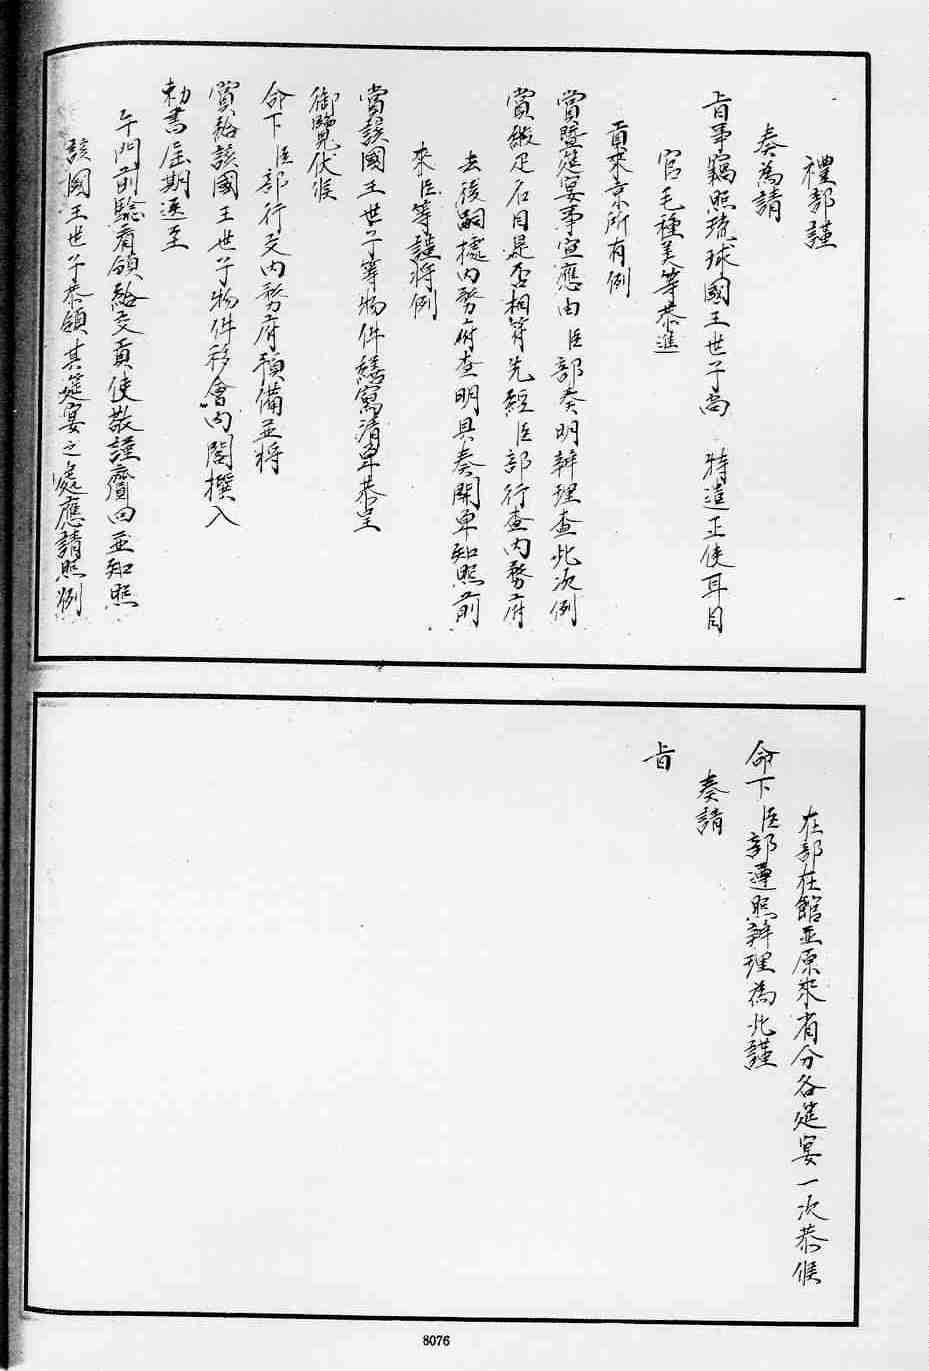 禮部謹
奏為請
旨事竊照琉球國王世子尚 特遣正使耳目
官毛種美等恭進
貢來京所有例
賞暨筵宴事宜應由臣部奏明辦理查此次例
賞緞疋名目是否相符先經臣部行查內務府
去後嗣據內務府查明具奏開單知照前
來臣等謹將例
賞該國王世子等物件繕寫清單恭呈
御覽伏候
命下臣部行文內務府預備並將
賞給該國王世子物件移會內閣撰入
勅書屆期送至
午門前驗看頒給交貢使敬謹齎回並知照
該國王世子恭領其筵宴之處應請照例
在部在館並原來省分各筵宴一次恭候
命下臣部遵照辦理為此謹
奏請
旨
8076